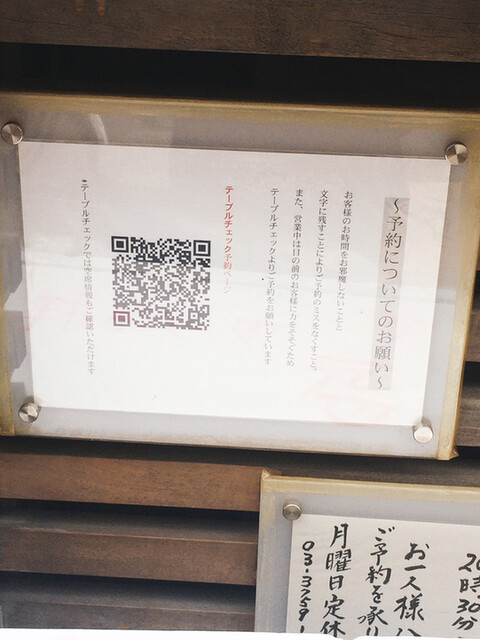 ～予約についてのお願い～
お客様のお時間をお邪魔しないことと
文字に残すことによりご予約のミスをなくすこと。
また、営業中は目の前のお客様に力をそそぐため
テーブルチェックよりご予約をお願いしています
テーブルチェック予約ページ
•テーブルチェックでは空席情報もご確認いただけます
時30分
お一人様
ご予約を承り
月曜日定休
03-3759-